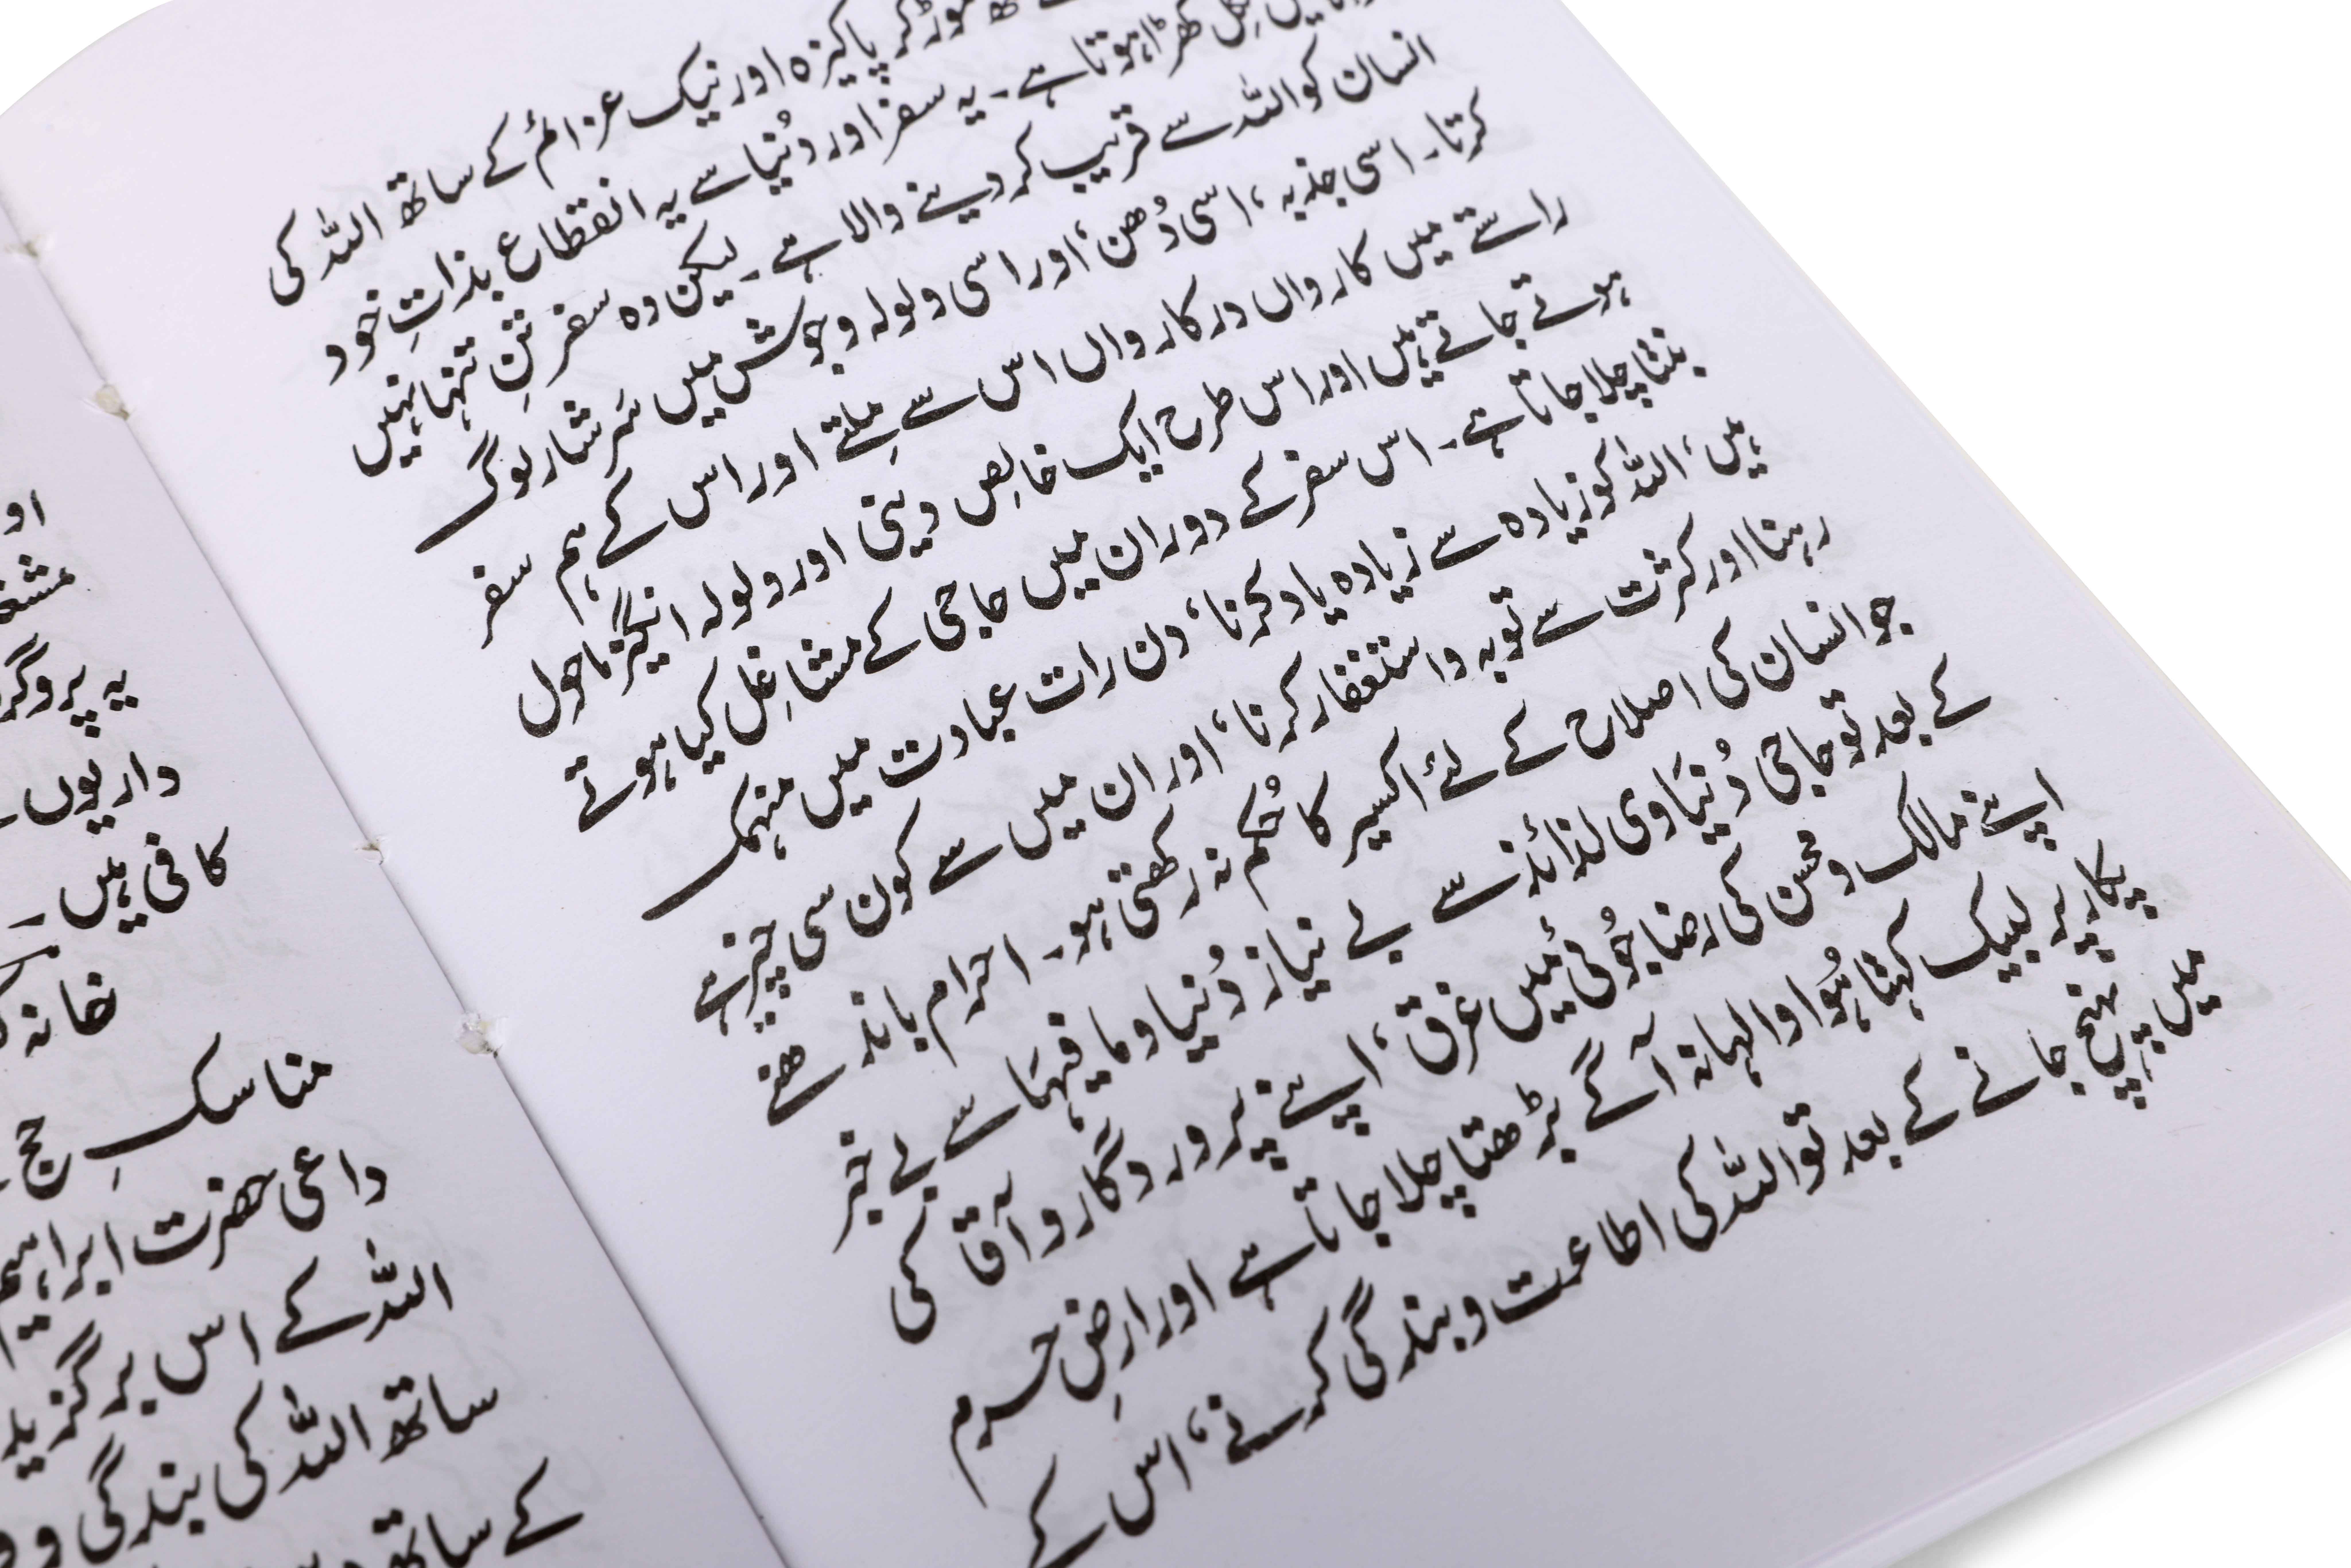 موڑ کر پاکیزہ اور نیک عزائم کے ساتھ اللہ کی
نکل کھڑا ہوتا ہے۔ یہ سفر اور دُنیا سے یہ انقطاع بذاتِ خود
انسان کو اللہ سے قریب کر دینے والا ہے۔ لیکن وہ سفر تنِ تنہا نہیں
کرتا۔ اسی جذبہ، اسی دُھن، اور اسی ولولہ وجوش میں سَرشار لوگ
راستے میں کارواں در کارواں اس سے مِلتے اور اس کے ہم سفر
ہوتے جاتے ہیں اور اس طرح ایک خالِص دینی اور ولولہ انگیز ماحول
بنتا چلا جاتا ہے۔ اس سفر کے دوران میں حاجی کے مشاغِل کیا ہوتے
ہیں، اللہ کو زیادہ سے زیادہ یاد کرنا، دن رات عبادت میں منہمک
رہنا اور کثرت سے توبہ واستغفار کرنا، اور ان میں سے کون سی چیز ہے
جو انسان کی اصلاح کے لئے اکسیر کا حُکم نہ رکھتی ہو۔ احرام باندھنے
کے بعد تو حاجی دُنیَاوی لذائذ سے بے نیاز دُنیا ومافیہَا سے بے خبر
اپنے مالک ومحسن کی رضاجُوئی میں غرق، اپنے پروردگار وآقا کی
پکار پر لبیک کہتا ہُوا والہانہ آگے بڑھتا چلا جاتا ہے اور ارضِ حرم
میں پہنچ جانے کے بعد تو اللہ کی اطاعت وبندگی کرنے، اس کے
او
یہ
داریوں
کافی ہیں۔
خانہ
مناسکِ حج
داعی حضرت ابراہیم
اللہ کے اس
ساتھ اللہ کی بندگی و
کے ساتھ